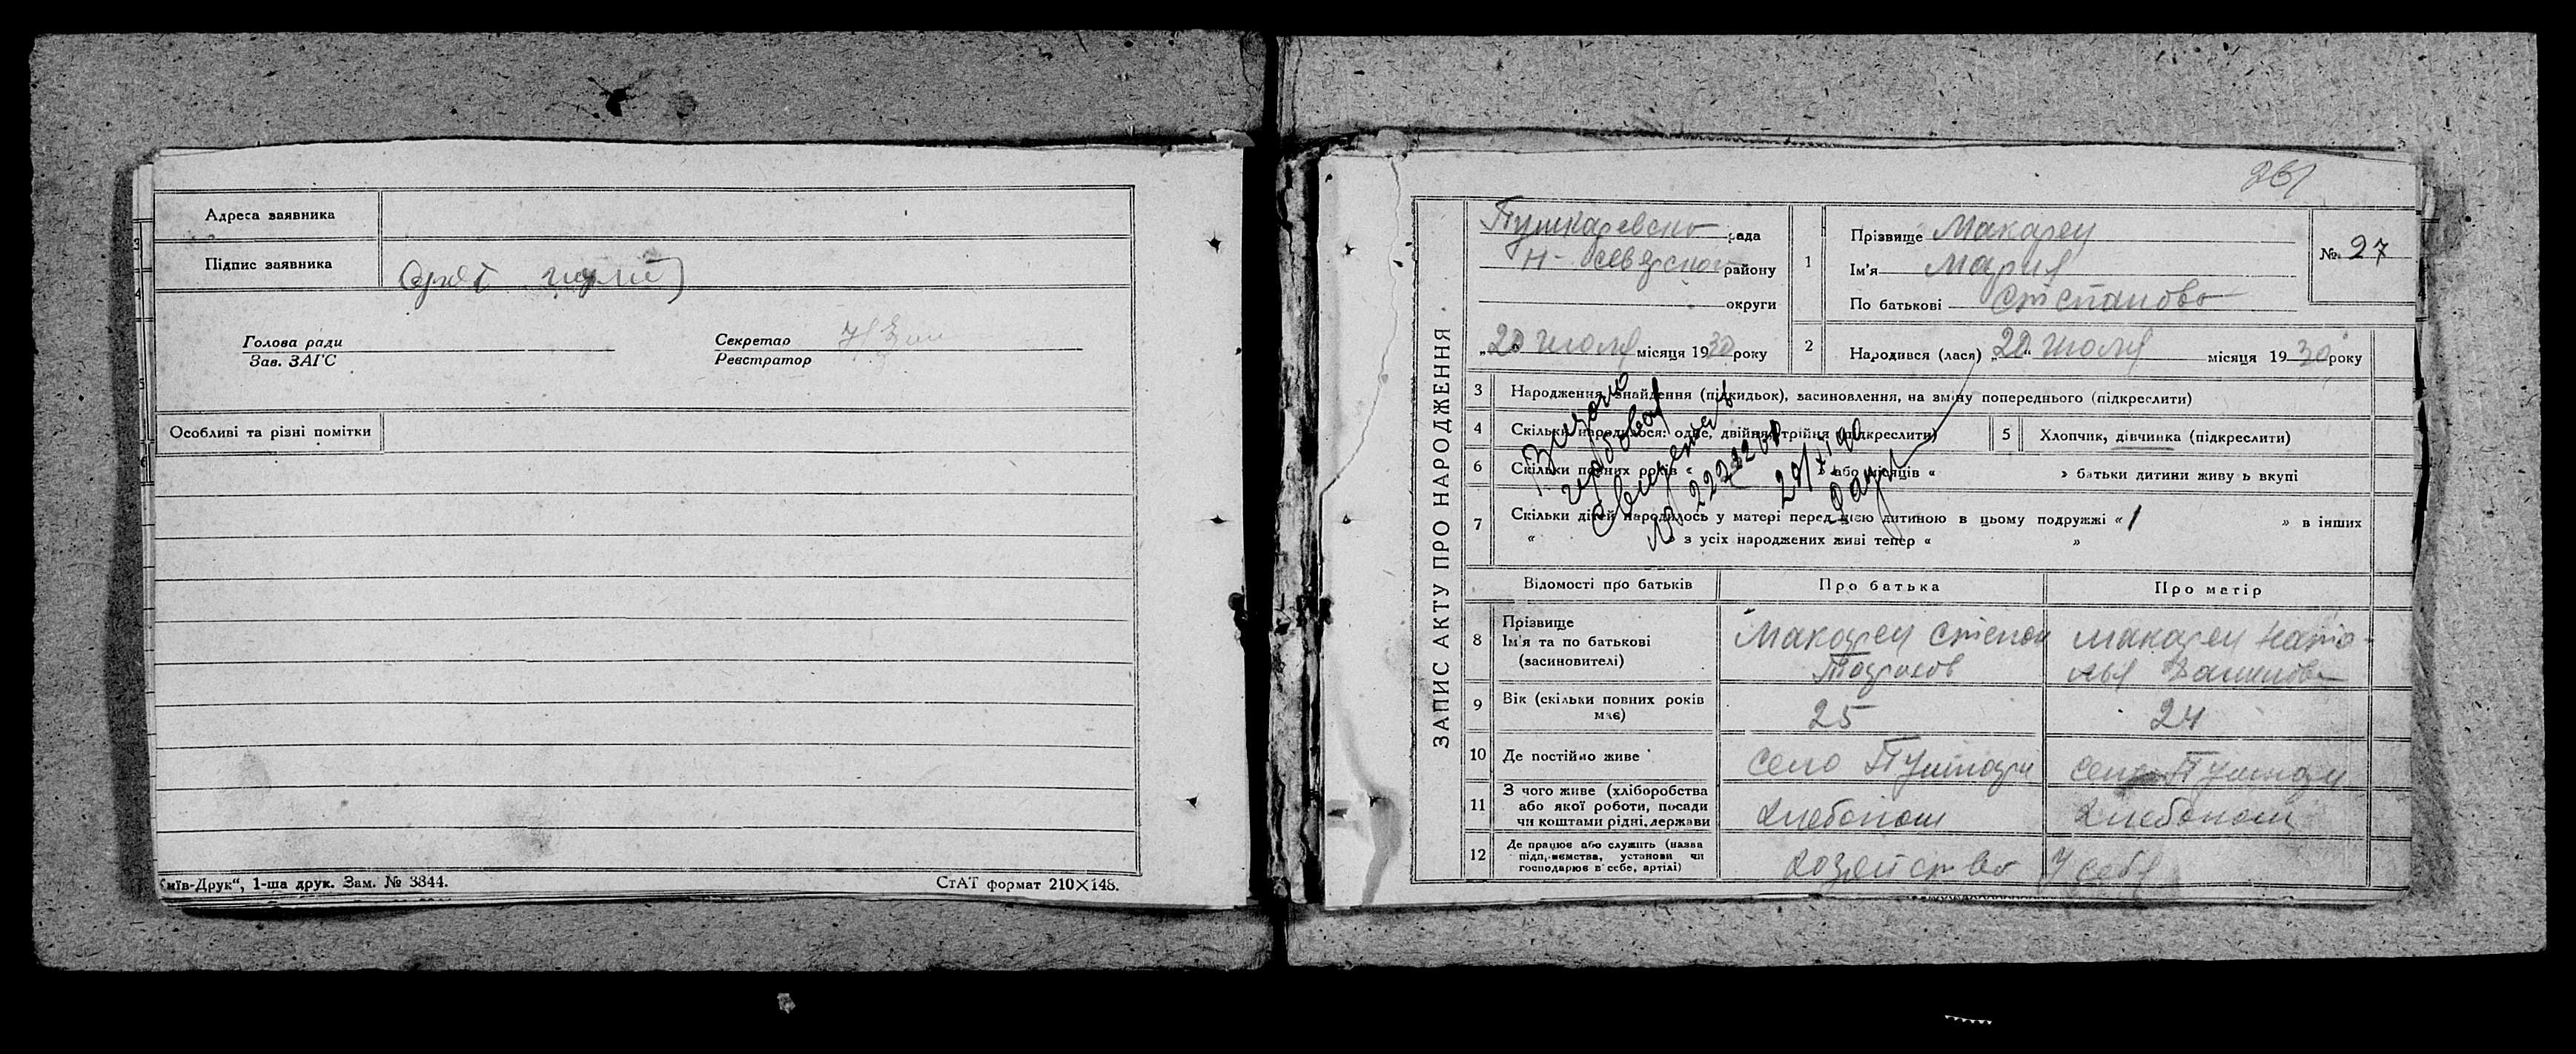 Адреса заявника
Підпис заявника
Голова ради
Зав. ЗАГС
Секретар
Реєстратор
Особливі та різні помітки
Київ-Друк“, 1-ша друк. Зам. № 3844.
СтАТ формат 210×148.
261
ЗАПИС АКТУ ПРО НАРОДЖЕННЯ
Пушкаревско рада
Н- Северског району
округи
„20 июля місяця 1930 року
1
Прізвище Макарец
Ім'я Мария
По батькові Степановн
№ 27
2
Народився (лася) „20“ июля місяця 1930 року
3 Народження, знайдення (підкидьок), засиновлення, на зміну попереднього (підкреслити)
4 Скільки народилося: одне, двійня, трійня (підкреслити)
5 Хлопчик, дівчинка (підкреслити)
6 Скільки повних років « » або місяців « » батьки дитини живуть вкупі
7 Скільки дітей народилось у матері перед цією дитиною в цьому подружжі «1 » в інших
« » з усіх народжених живі тепер « »
Відомості про батьків
Про батька
Про матір
8 Прізвище
Ім'я та по батькові
(засиновителі)
Макарец Степан
Тарасов
Макарец Ната-
лья
9 Вік (скільки повних років
має)
25
24
10 Де постійно живе
село Пушкари
село Пушкари
11 З чого живе (хліборобства
або якої роботи, посади
чи коштами рідні, держави
Хлебопаш
Хлебопаш
12 Де працює або служить (назва
підприємства, установи чи
господарює в себе, артілі)
хозяйство У себя